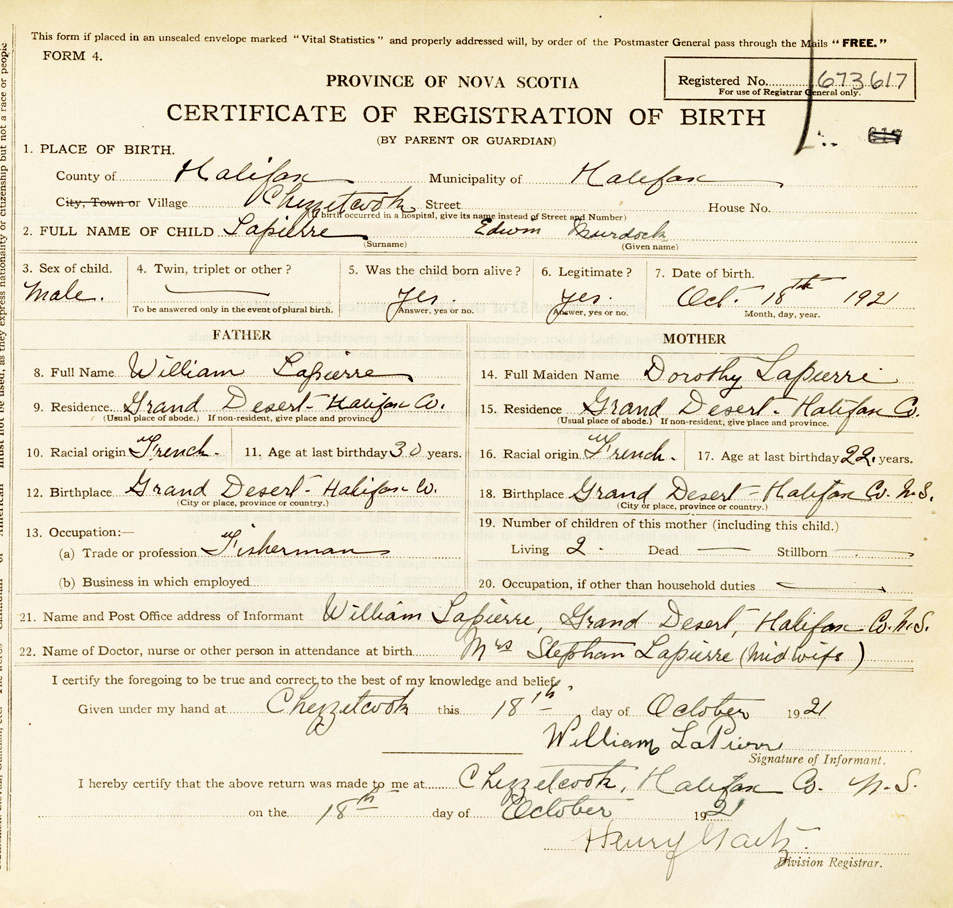 This form if placed in an unsealed envelope marked "Vital Statistics" and properly addressed will, by order of the Postmaster General pass through the Mails "FREE."
FORM 4.
PROVINCE OF NOVA SCOTIA
Registered No. 673617
For use of Registrar General only.
CERTIFICATE OF REGISTRATION OF BIRTH
(BY PARENT OR GUARDIAN)
1. PLACE OF BIRTH.
County of Halifax Municipality of Halifax
City, Town or Village Chezzetcook Street House No.
(If birth occurred in a hospital, give its name instead of Street and Number)
2. FULL NAME OF CHILD Lapierre Edwin Murdock
(Surname) (Given name)
3. Sex of child. 4. Twin, triplet or other? 5. Was the child born alive? 6. Legitimate? 7. Date of birth.
Male. yes. yes. Oct. 18th 1921
To be answered only in the event of plural birth. Answer, yes or no. Answer, yes or no. Month, day, year.
FATHER MOTHER
8. Full Name William Lapierre 14. Full Maiden Name Dorothy Lapierre
9. Residence. Grand Desert- Halifax Co. 15. Residence Grand Desert- Halifax Co.
(Usual place of abode.) If non-resident, give place and province. (Usual place of abode.) If non-resident, give place and province.
10. Racial origin French. 11. Age at last birthday 30 years. 16. Racial origin French. 17. Age at last birthday 22. years.
12. Birthplace Grand Desert- Halifax Co. 18. Birthplace Grand Desert- Halifax Co. N.S.
(City or place, province or country.) (City or place, province or country.)
13. Occupation:— 19. Number of children of this mother (including this child.)
(a) Trade or profession Fisherman Living 2. Dead — Stillborn —
(b) Business in which employed 20. Occupation, if other than household duties
21. Name and Post Office address of Informant William Lapierre, Grand Desert, Halifax Co. N.S.
22. Name of Doctor, nurse or other person in attendance at birth Mrs Stephan Lapierre (midwife)
I certify the foregoing to be true and correct to the best of my knowledge and belief.
Given under my hand at Chezzetcook this 18th day of October 1921
William LaPierre
Signature of Informant.
I hereby certify that the above return was made to me at Chezzetcook, Halifax Co. N.S.
on the 18th day of October 1921
Henry
Division Registrar.